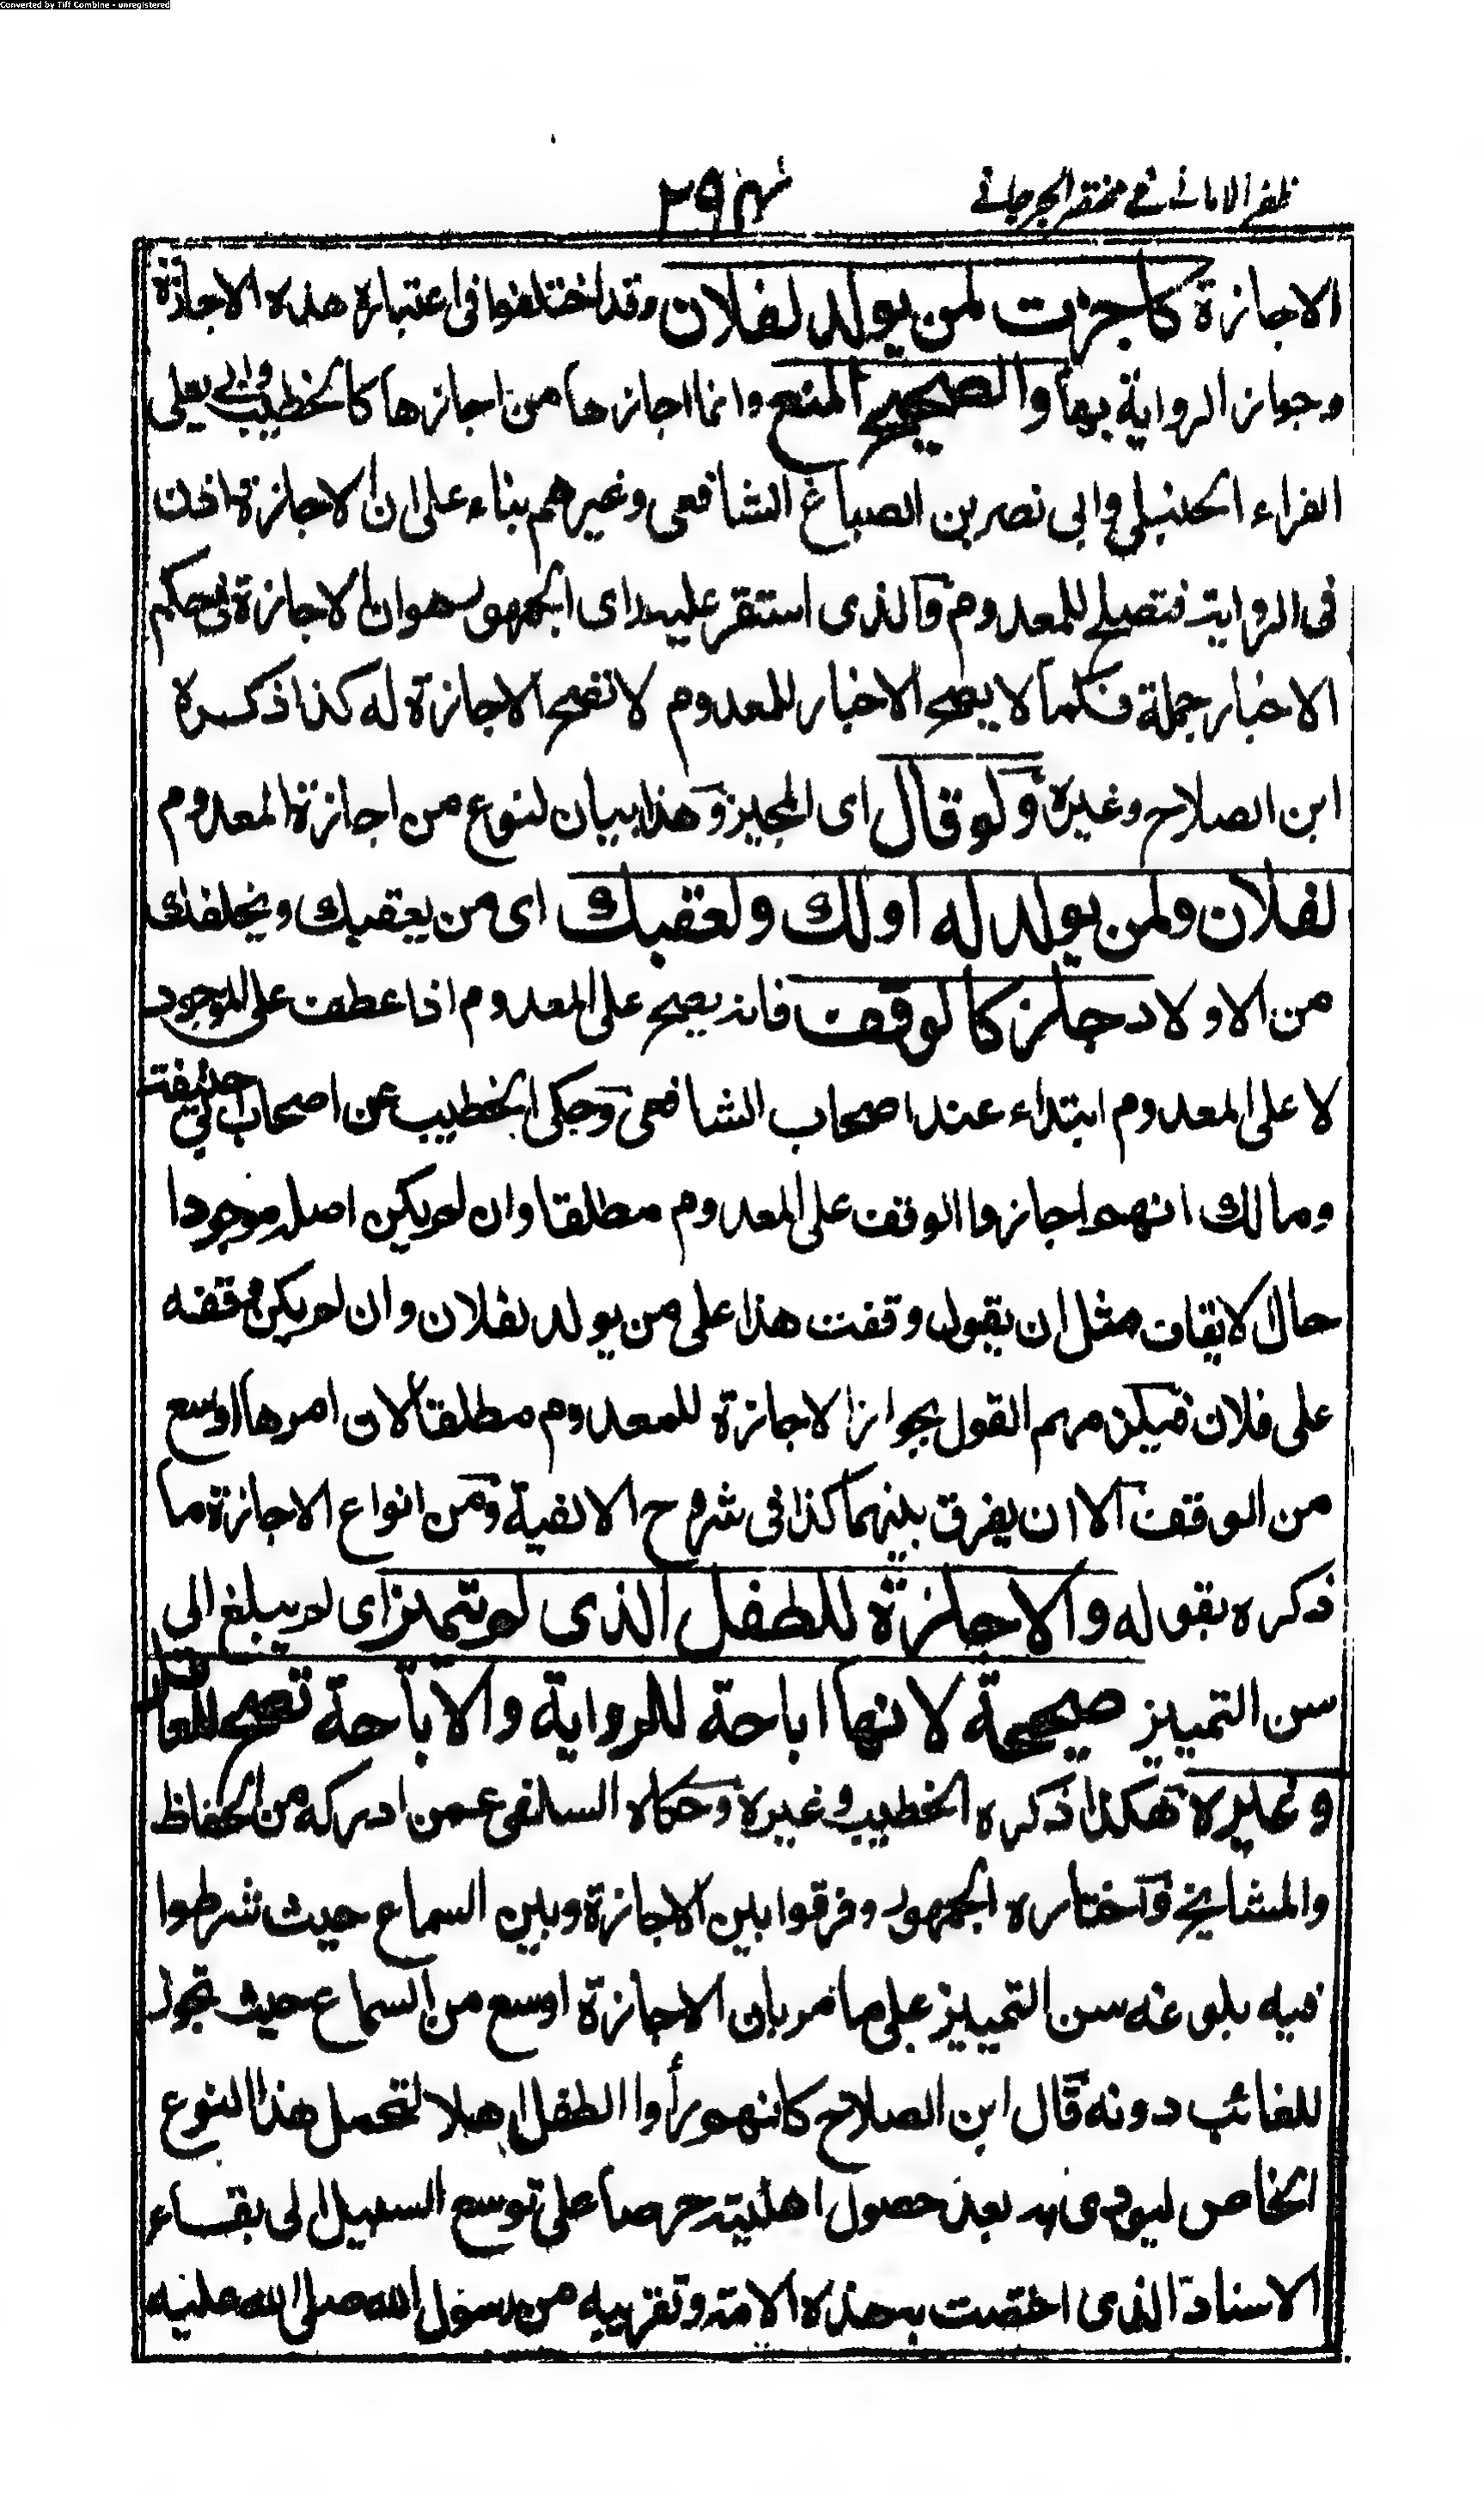 Converted by Tiff Combine - unregistered
ظفر الامانی فی مختصر الجرجانی
الاجازة كاجزت لمن يولد لفلان وقد اختلفوا فى اعتبار هذه الاجازة
وجواز الرواية بها والصحيح المنع وانما اجازها من اجازها كالخطيب وابى يعلى
الفراء الحنبلى وابى نصر بن الصباغ الشافعى وغيرهم بناء على ان الاجازة اذن
فى الرواية فتصلح للمعدوم والذى استقر عليه راى الجمهور هو ان الاجازة فى حكم
الاخبار جملة فكما لا يصح الاخبار للمعدوم لا تصح الاجازة له كذا ذكره
ابن الصلاح وغيره ولو قال اى المجيز وهذا بيان لنوع من اجازة المعدوم
لفلان ولمن يولد له او لك ولعقبك اى من يعقبك ويخلفك
من الاولاد جاز كالوقف فانه يصح على المعدوم اذا عطف على الموجود
لا على المعدوم ابتداء عند اصحاب الشافعى وحكى الخطيب عن اصحاب ابى حنيفة
ومالك انهم اجازوا الوقف على المعدوم مطلقا وان لم يكن اصله موجودا
حال الايقاف مثل ان يقول وقفت هذا على من يولد لفلان وان لم يكن وقفه
على فلان فيكن مهم القول بجواز الاجازة للمعدوم مطلقا لان امرها اوسع
من الوقف الا ان يفرق بينهما كذا فى شروح الالفية ومن انواع الاجازة ما
ذكره بقوله والاجازة للطفل الذى لم يتميز اى لم يبلغ الى
سن التمييز صحيحة لانها اباحة للرواية والاباحة تصح للعاقل
وغيره هكذا ذكره الخطيب وغيره وحكاه السلفى عمن ادركه من الحفاظ
والمشايخ واختاره الجمهور وفرقوا بين الاجازة وبين السماع حيث شرطوا
فيه بلوغه سن التمييز على ما مر بان الاجازة اوسع من السماع حيث تجوز
للغائب دونه قال ابن الصلاح كانهم رأوا الطفل اهلا لتحمل هذا النوع
الخاص ليودى به بعد حصول اهليته حرصا على توسع السبيل الى بقاء
الاسناد الذى اختصت بهذه الامة وتقريبه من رسول الله صلى الله عليه